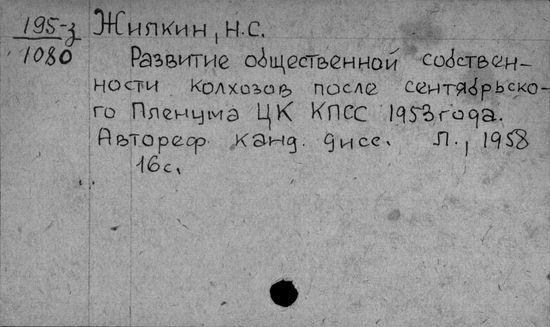 195-з Жилкин, Н.С.
1080
Развитие общественной собствен-
ности колхозов после сентябрьско-
го Пленума ЦК КПСС 1953 года.
Автореф. канд. дисс. Л., 1958
16с.